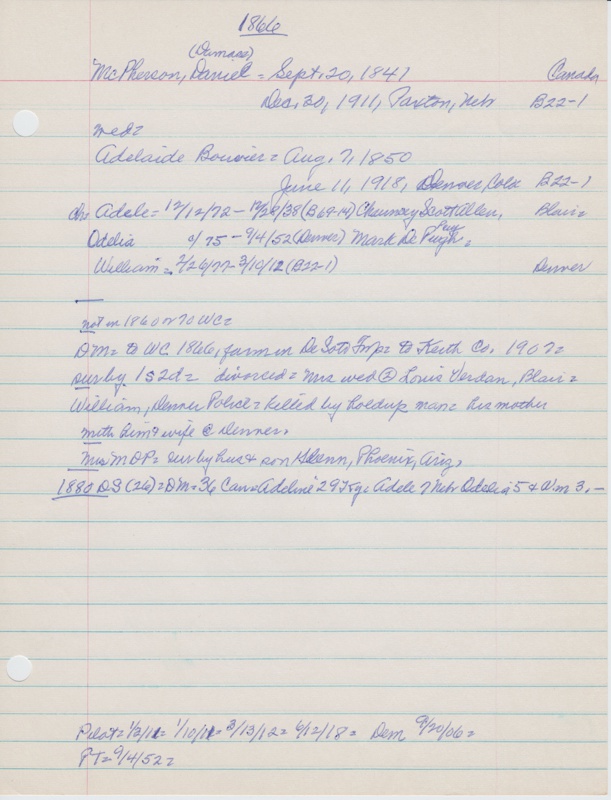 1866
(Damase)
McPherson, Daniel = Sept. 20, 1847 Canada
Dec. 30, 1911, Paxton, Nebr B22-1
med=
Adelaide Bouvier = Aug. 7, 1850
June 11, 1918, Denver, Colo B22-1
ch= Adele = 12/12/72 - 12/28/38 (B69-14) Chauncey Scott Allen, Blair=
Odelia 0/75 - 9/4/52 (Denver) Mark De Puy=
William = 2/26/77 - 3/10/12 (B22-1) Denver
not in 1860 or 70 WC=
DM= to WC 1866, farm in De Soto Twp= to Keith Co. 1907=
sur by 1s 2d= divorced= Mrs wed ② Louis Verdan, Blair=
William, Denver Police= killed by holdup man= his mother
with him & wife @ Denver.
Mrs MDP= sur by hus & son Glenn, Phoenix, Ariz.
1880 DS (26)= DM= 36 Can= Adeline 29 Adele 7 Nebr Odelia 5 & Wm 3.-
Pilot= 1/3/11= 1/10/11= 3/13/12= 6/12/18= Dem 9/20/06=
PT= 9/4/52=